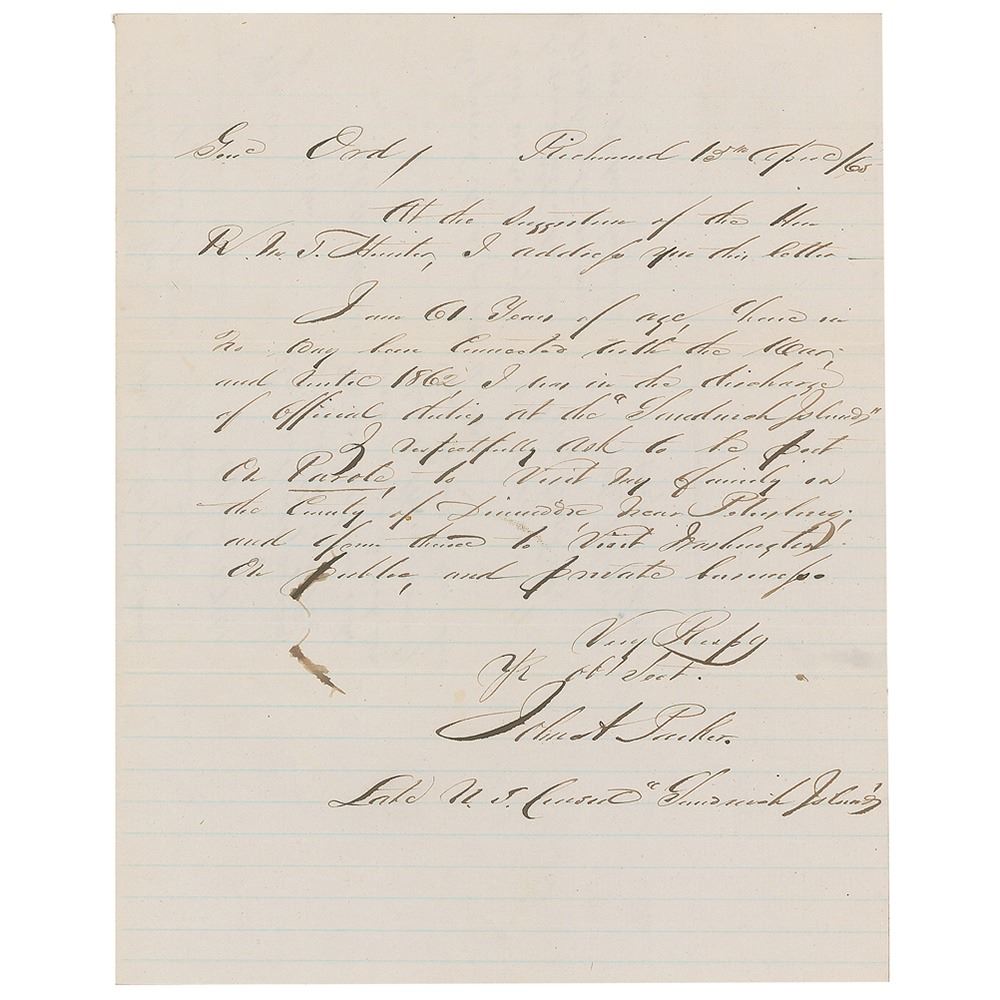 Genl Ord, Richmond 15th April /65
At the suggestion of the Hon
R. M. T. Hunter, I address you this letter —
I am 61 Years of age, have in
no way been Connected with the War,
and until 1862 I was in the discharge
of Official duties, at the "Sandwich Islands"
I respectfully ask to be put
on Parole, to Visit my family in
the County of Dinwiddie near Petersburg;
and from thence to Visit Washington
On public, and private business.
Very Respy
Yr obt Servt.
John A Parker.
Late U. S. Consul "Sandwich Islands"